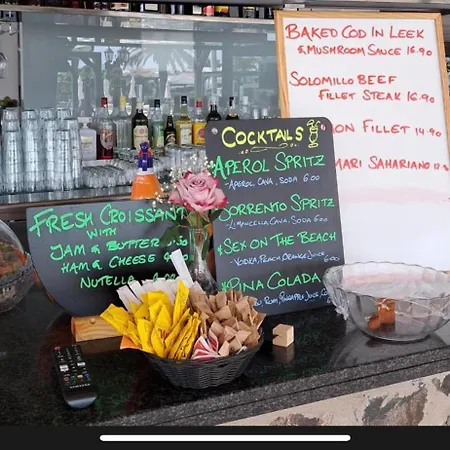 BAKED COD IN LEEK
& MUSHROOM SAUCE 16.90
SOLOMILLO BEEF
FILLET STEAK 16.90
FILLET 14.90
SAHARIANO
COCKTAILS
APEROL SPRITZ
- APEROL, CAVA, SODA 6.00
SORRENTO SPRITZ
- LIMONCELLO, CAVA, SODA 6.00
*SEX ON THE BEACH
- VODKA, PEACH, ORANGE JUICE 6.00
PINA COLADA
RUM, PINEAPPLE JUICE,
FRESH CROISSANT
WITH
JAM & BUTTER
HAM & CHEESE
NUTELLA